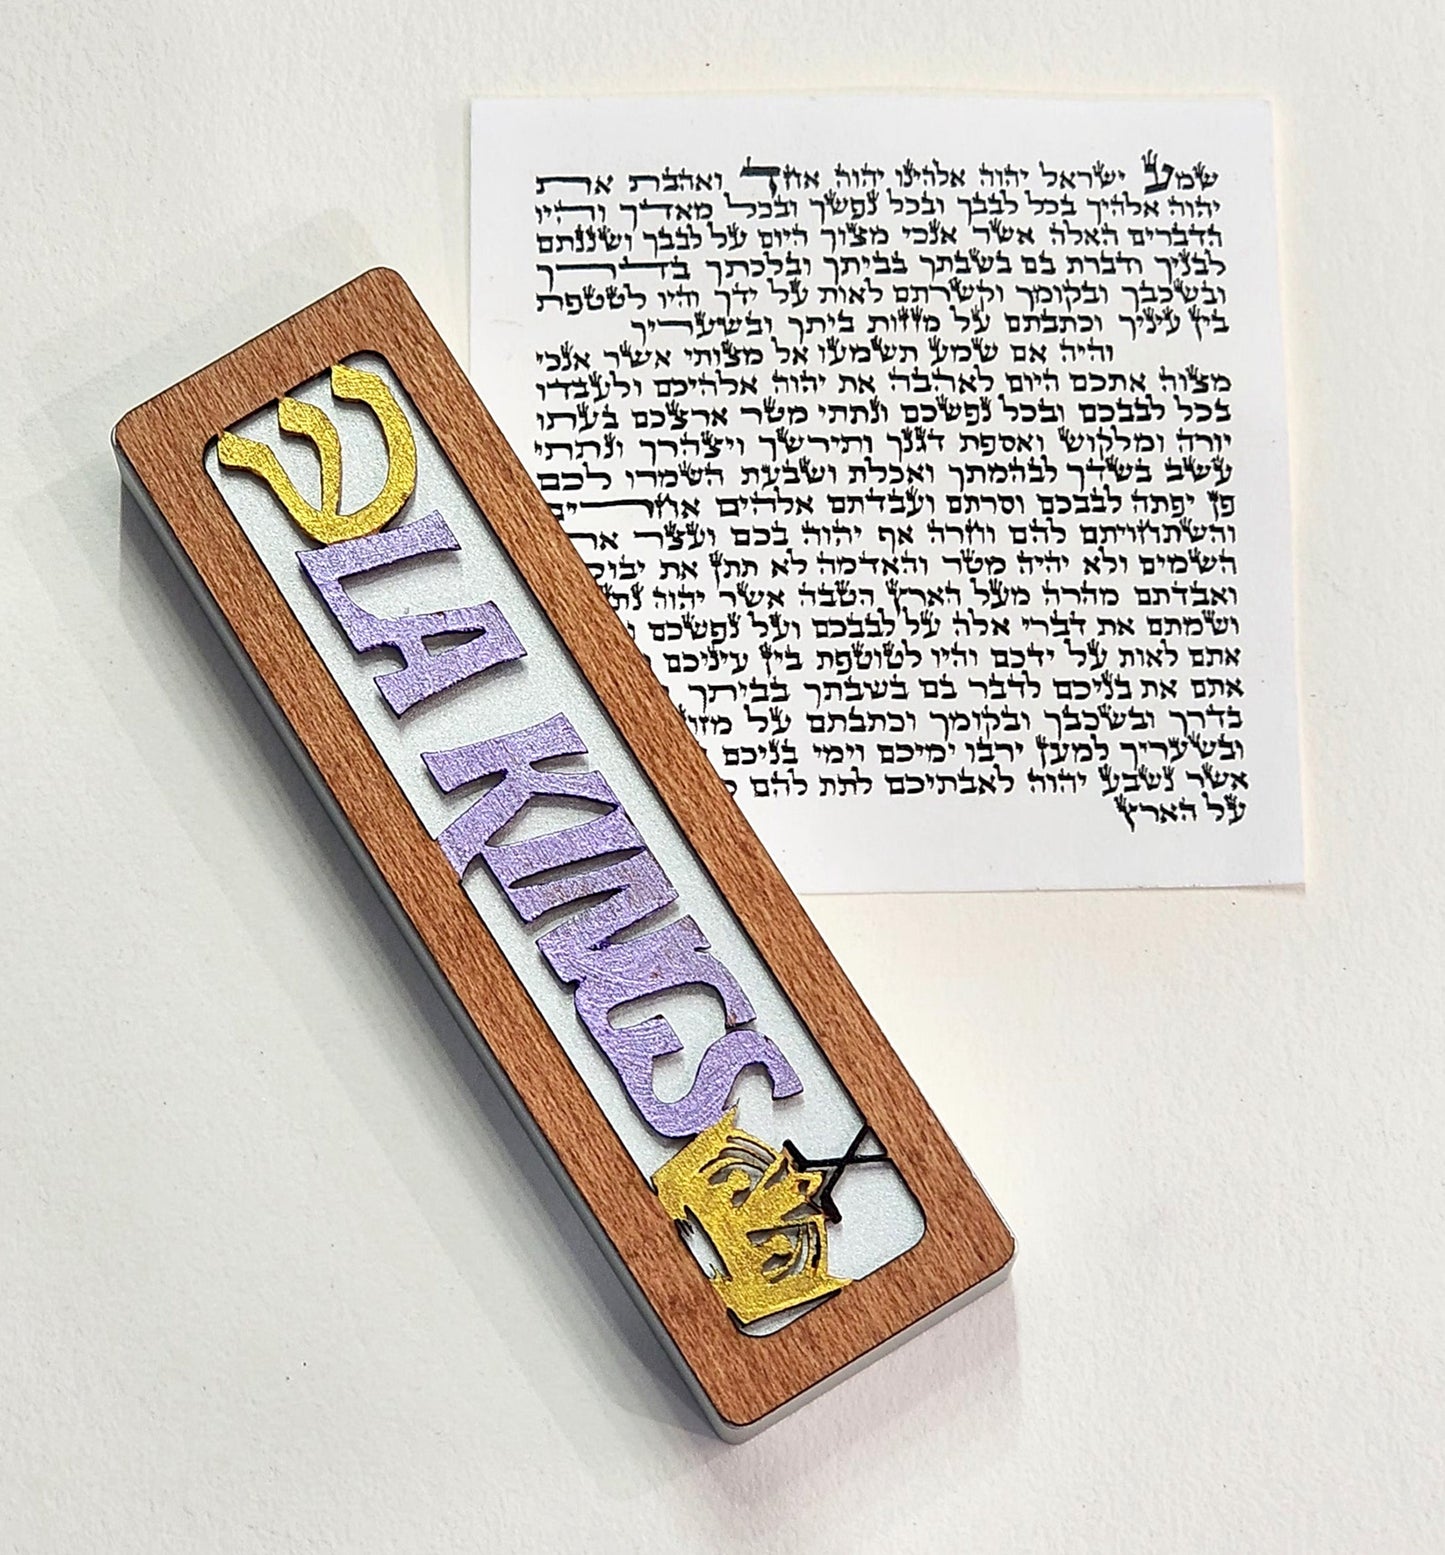 ש
LA KINGS
שמע ישראל יהוה אלהינו יהוה אחד ואהבת את
יהוה אלהיך בכל לבבך ובכל נפשך ובכל מאדך והיו
הדברים האלה אשר אנכי מצוך היום על לבבך ושננתם
לבניך ודברת בם בשבתך בביתך ובלכתך בדרך
ובשכבך ובקומך וקשרתם לאות על ידך והיו לטטפת
בין עיניך וכתבתם על מזזות ביתך ובשעריך
והיה אם שמע תשמעו אל מצותי אשר אנכי
מצוה אתכם היום לאהבה את יהוה אלהיכם ולעבדו
בכל לבבכם ובכל נפשכם ונתתי מטר ארצכם בעתו
יורה ומלקוש ואספת דגנך ותירשך ויצהרך ונתתי
עשב בשדך לבהמתך ואכלת ושבעת השמרו לכם
פן יפתה לבבכם וסרתם ועבדתם אלהים אחרים
והשתחויתם להם וחרה אף יהוה בכם ועצר
השמים ולא יהיה מטר והאדמה לא תתן את
ואבדתם מהרה מעל הארץ הטבה אשר יהוה
ושמתם את דברי אלה על לבבכם ועל נפשכם
אתם לאות על ידכם והיו לטוטפת בין עיניכם
אתם את בניכם לדבר בם בשבתך בביתך
בדרך ובשכבך ובקומך וכתבתם על
ובשעריך למען ירבו ימיכם וימי בניכם
אשר נשבע יהוה לאבתיכם לתת להם
על הארץ